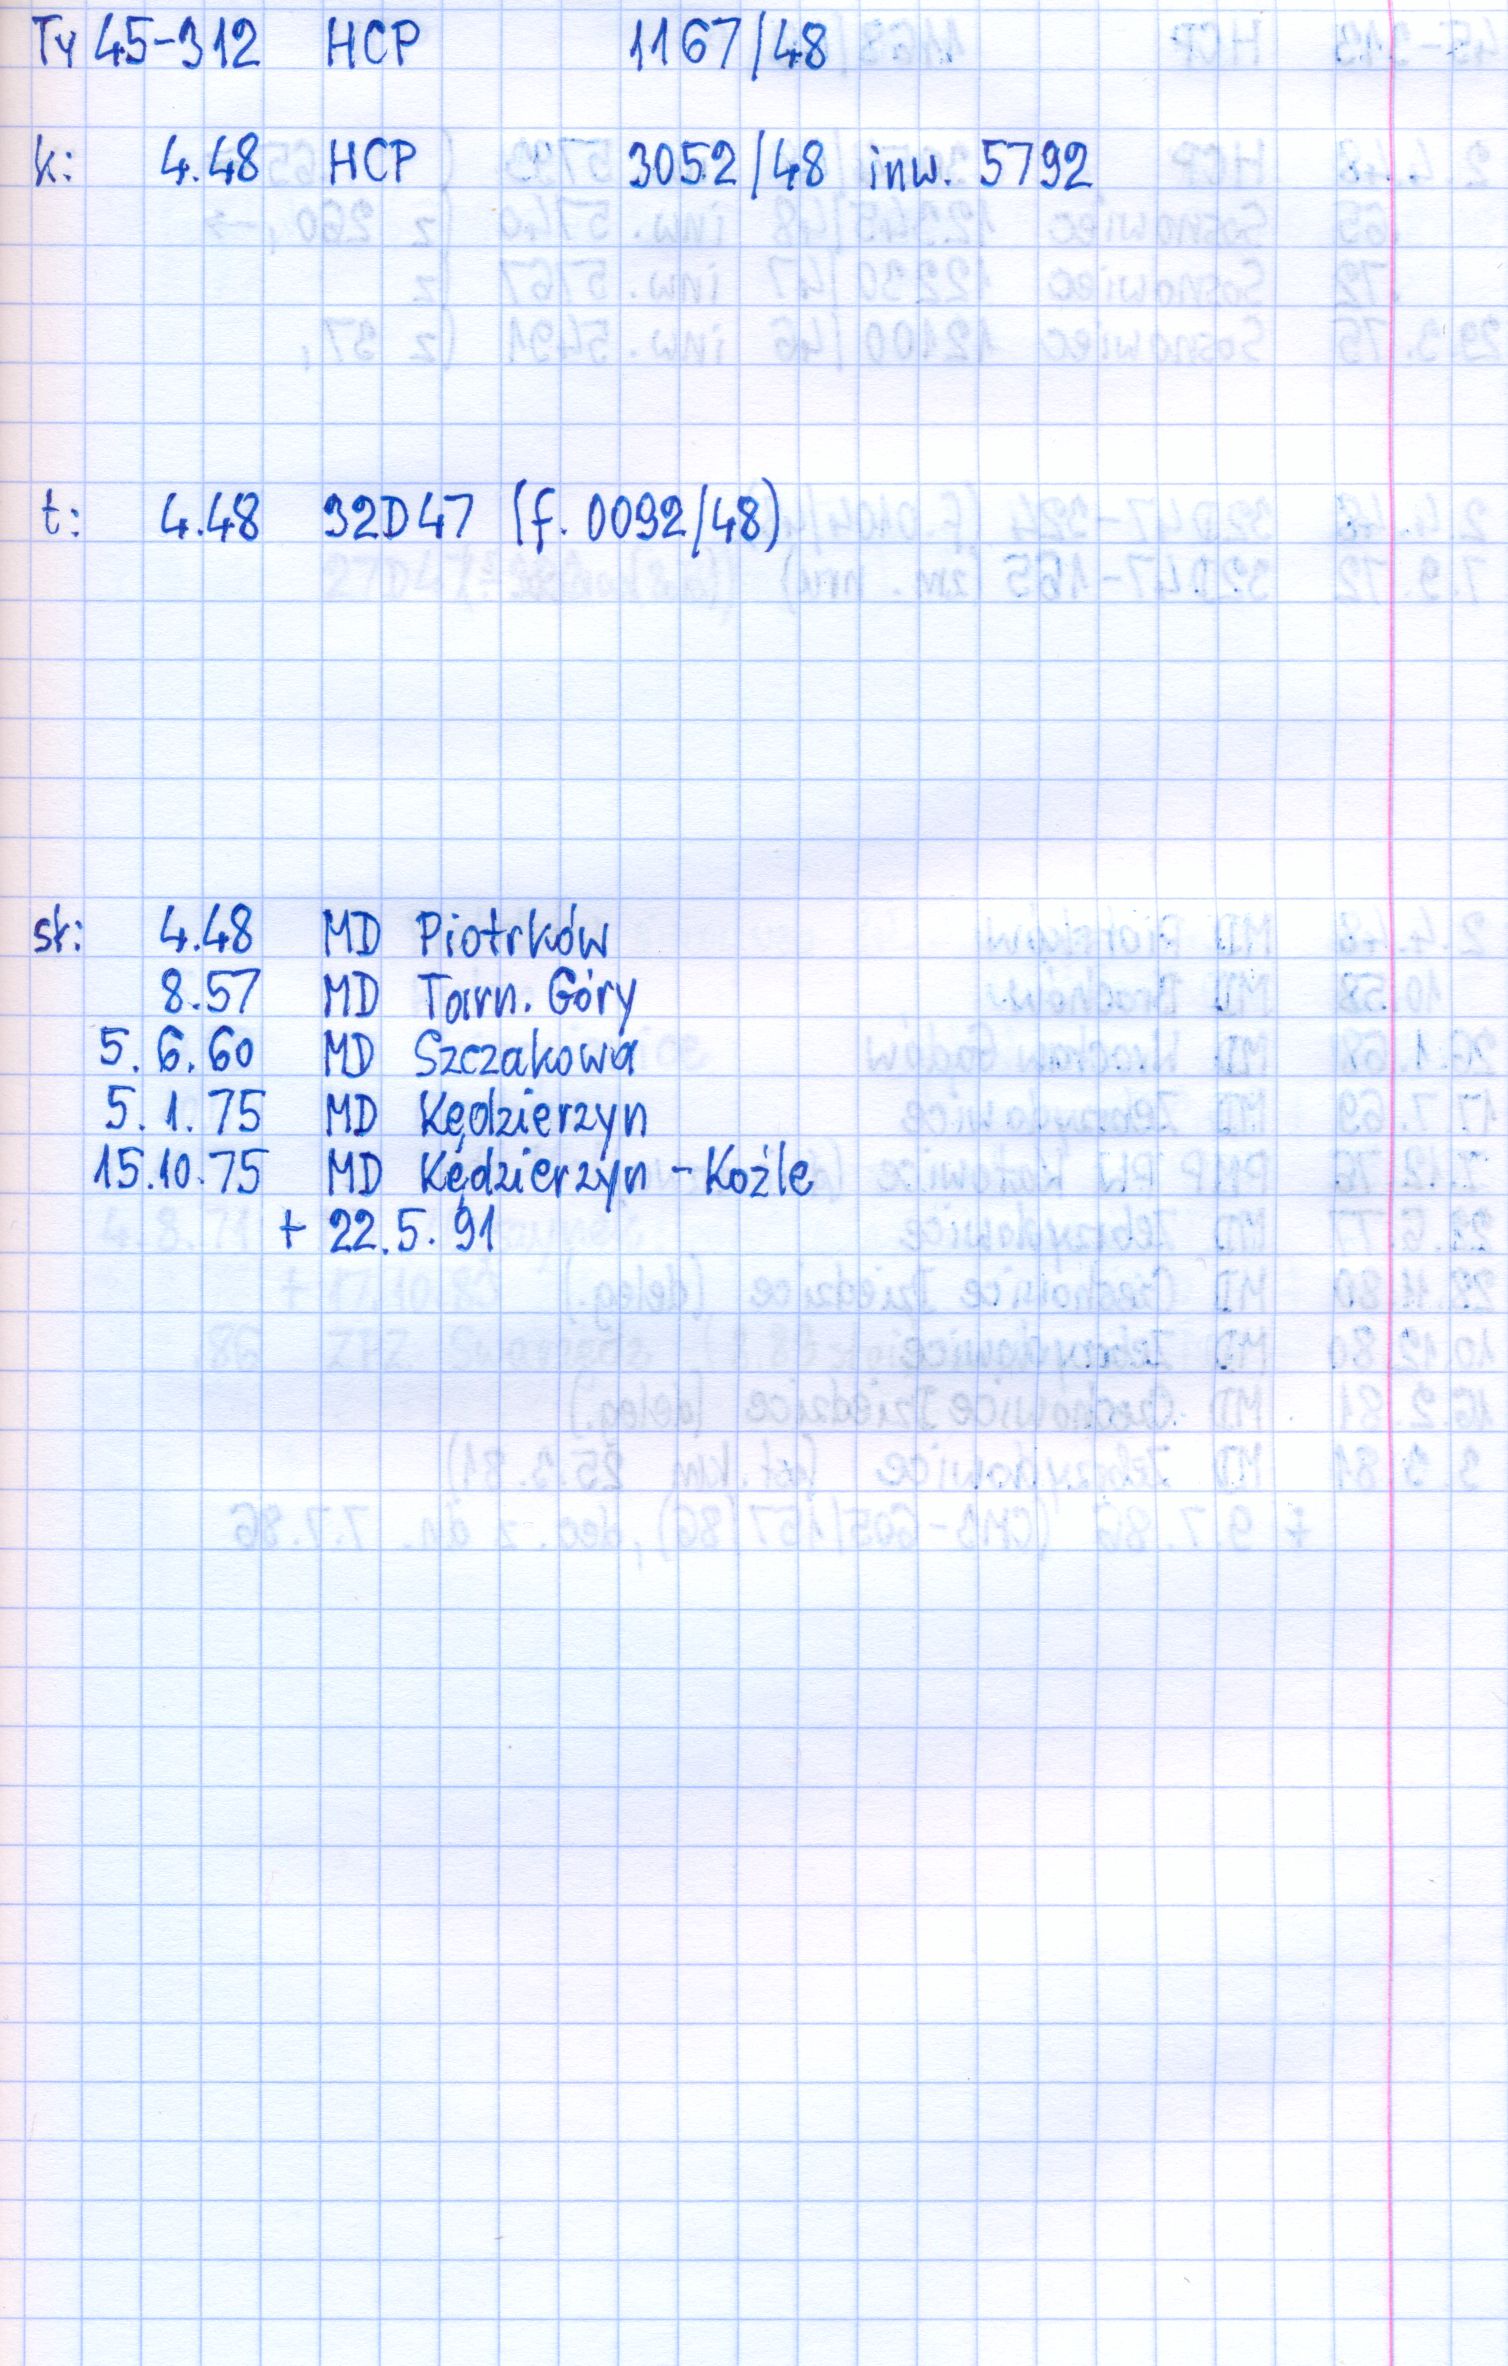 Ty 45-312 HCP 1167/48
k: 4.48 HCP 3052/48 inw. 5792
t: 4.48 32D47 (f. 0092/48)
st: 4.48 MD Piotrków
8.57 MD Tarn. Góry
5.6.60 MD Szczakowa
5.1.75 MD Kędzierzyn
15.10.75 MD Kędzierzyn-Koźle
+ 22.5.91